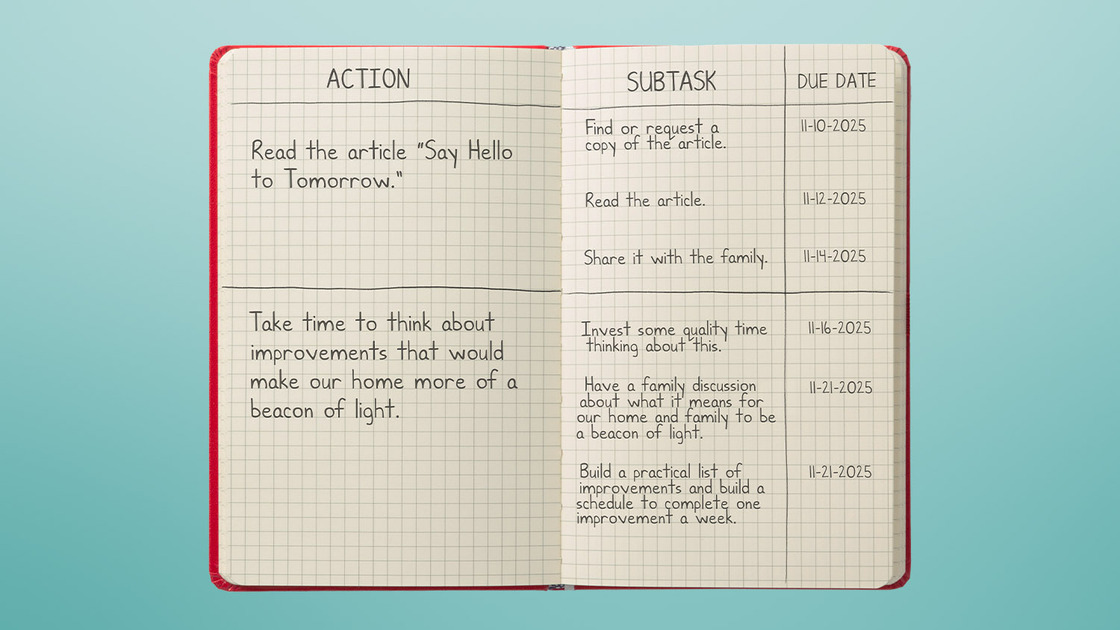 ACTION
Read the article "Say Hello
to Tomorrow."
Take time to think about
improvements that would
make our home more of a
beacon of light.
SUBTASK
DUE DATE
Find or request a
copy of the article.
11-10-2025
Read the article.
11-12-2025
Share it with the family.
11-14-2025
Invest some quality time
thinking about this.
11-16-2025
Have a family discussion
about what it means for
our home and family to be
a beacon of light.
11-21-2025
Build a practical list of
improvements and build a
schedule to complete one
improvement a week.
11-21-2025